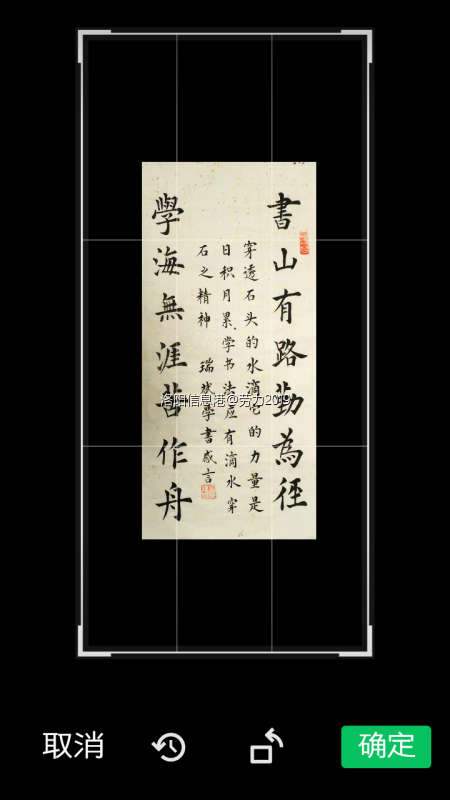 書山有路勤為徑
穿透石头的水滴它的力量是
日积月累.学书法应有滴水穿
石之精神 瑞斌學書感言
學海無涯苦作舟
洛阳信息港@劳力2019
取消
确定